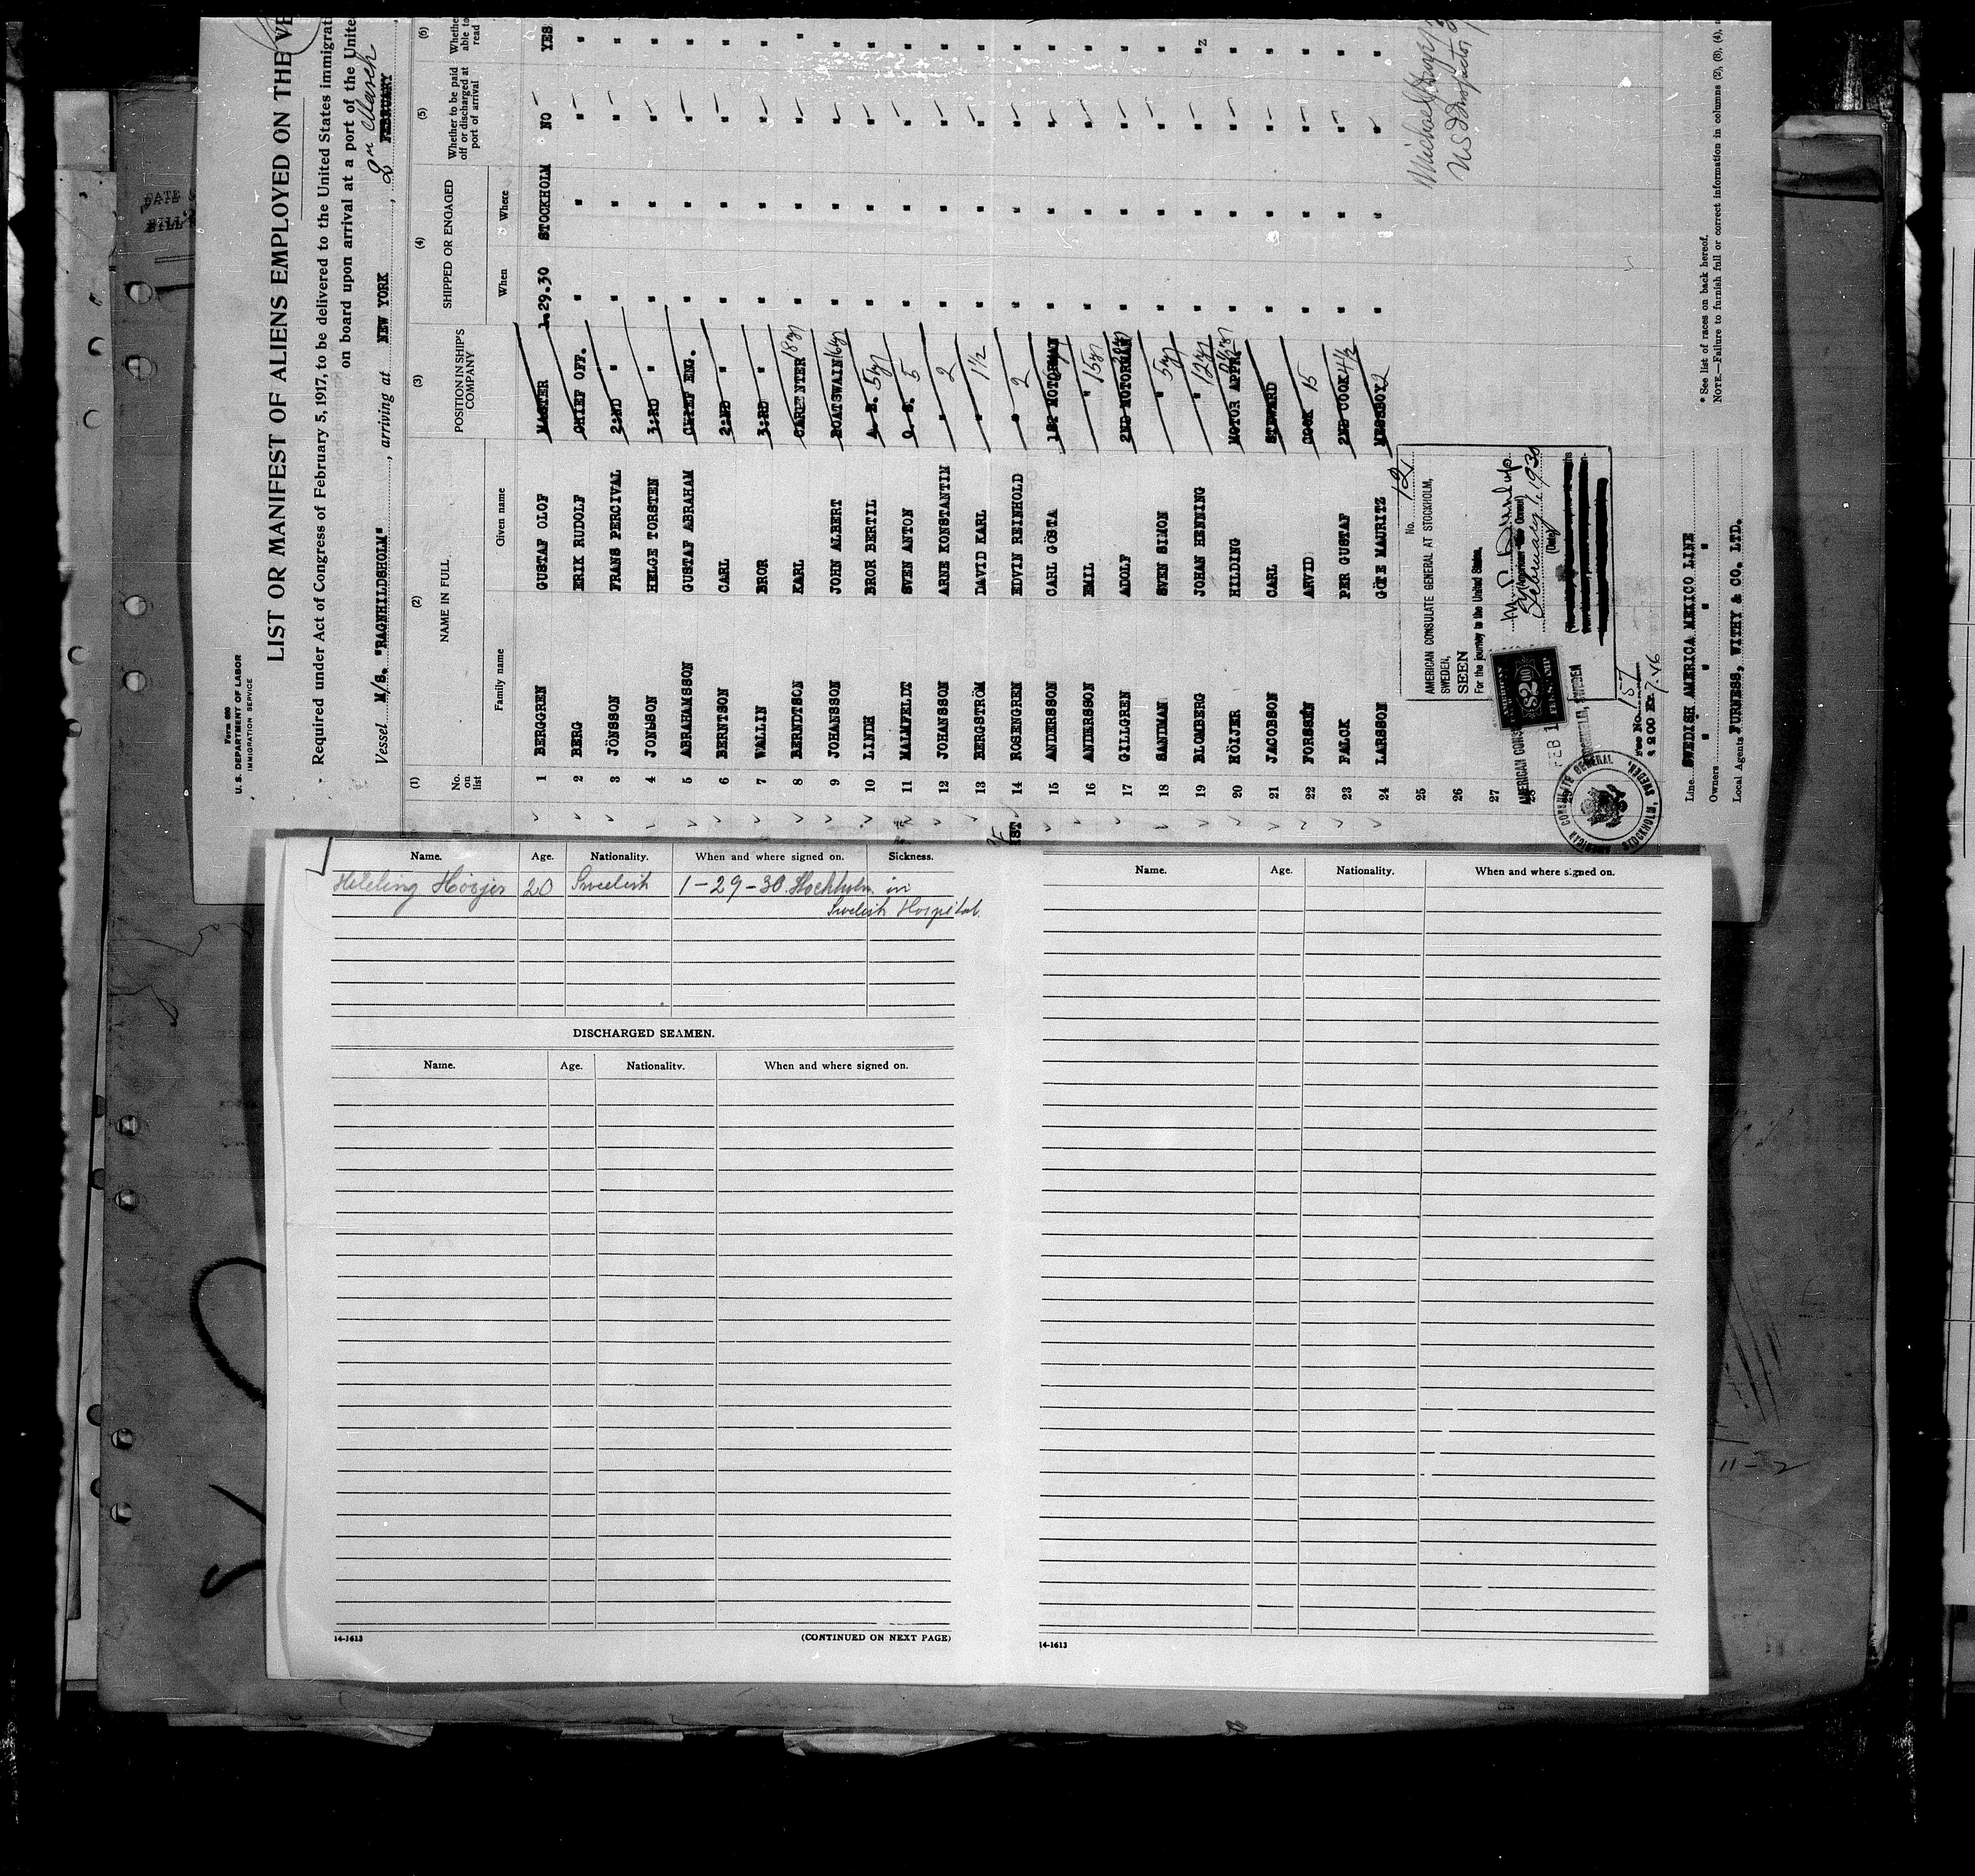 Form 680
U. S. DEPARTMENT OF LABOR
IMMIGRATION SERVICE
LIST OR MANIFEST OF ALIENS EMPLOYED ON THE
Required under Act of Congress of February 5, 1917, to be delivered to the United States
on board upon arrival at a port of the
Vessel M/S. "RAGNHILDSHOLM", arriving at NEW YORK, 2nd March FEBRUARY
(1) (2) (3) (4) (5) (6)
No. on list NAME IN FULL POSITION IN SHIP'S COMPANY SHIPPED OR ENGAGED Whether to be paid off or discharged at port of arrival able to read
Family name Given name When Where
1 BERGGREN GUSTAF OLOF MASTER 1.29.30 STOCKHOLM NO YES
2 BERG ERIK RUDOLF CHIEF OFF. " " " "
3 JÖNSSON FRANS PERCIVAL 2:ND " " " " "
4 JONGSON HELGE TORSTEN 3:RD " " " " "
5 ABRAHAMSSON GUSTAF ABRAHAM CHIEF ENG. " " " "
6 BERNTSON CARL 2:ND " " " " "
7 WALLIN BROR 3:RD " " " " "
8 BERNDTSON KARL CARPENTER 18 yr " " " "
9 JOHANSSON JOHN ALBERT BOATSWAIN 16 yr " " " "
10 LINDH BROR BERTIL A. B. 5 yr " " " "
11 MALMFELDT SVEN ANTON O. S. 5 " " " "
12 JOHANSSON ARNE KONSTANTIN " 2 " " " "
13 BERGSTRÖM DAVID KARL " 1½ " " " "
14 ROSENGREN EDVIN REINHOLD " 2 " " " "
15 ANDERSSON CARL GÖSTA 1ST MOTORMAN " " " "
16 ANDERSSON EMIL " 15 yr " " " "
17 GILLGREN ADOLF 2ND MOTORMAN " " " "
18 SANDMAN SVEN SIMON " 5 yr " " " "
19 BLOMBERG JOHAN HENNING " 12 yr " " " "
20 HÖIJER HILDING MOTOR APPR. " " " "
21 JACOBSON CARL STEWARD " " " "
22 FORSSÉN ARVID COOK 15 " " " "
23 FALCK PER GUSTAF 2ND COOK 4½ " " " "
24 LARSON GÖTE MAURITZ MESSBOY 2 " " " "
25
26
27
28
No. 121
AMERICAN CONSULATE GENERAL AT STOCKHOLM,
SWEDEN,
SEEN
For the journey to the United States.
February 1, 1930
(Date)
AMERICAN
$2.00
FEB 1
STOCKHOLM, SWEDEN
Fee No. 157
$ 200 Kr. 7.46
AMERICAN CONSULATE GENERAL
STOCKHOLM, SWEDEN.
Michael
US Inspector
Line SWEDISH AMERICA MEXICO LINE
Owners " " " "
Local Agents FURNESS, WITHY & CO. LTD.
* See list of races on back hereof.
NOTE.—Failure to furnish full or correct information in columns (2), (3), (4),
Name. Age. Nationality. When and where signed on. Sickness.
Hilding Höijer 20 Swedish 1-29-30 Stockholm in
Swedish Hospital.
DISCHARGED SEAMEN.
Name. Age. Nationality. When and where signed on.
14-1613 (CONTINUED ON NEXT PAGE)
Name. Age. Nationality. When and where signed on.
14-1613
11-2